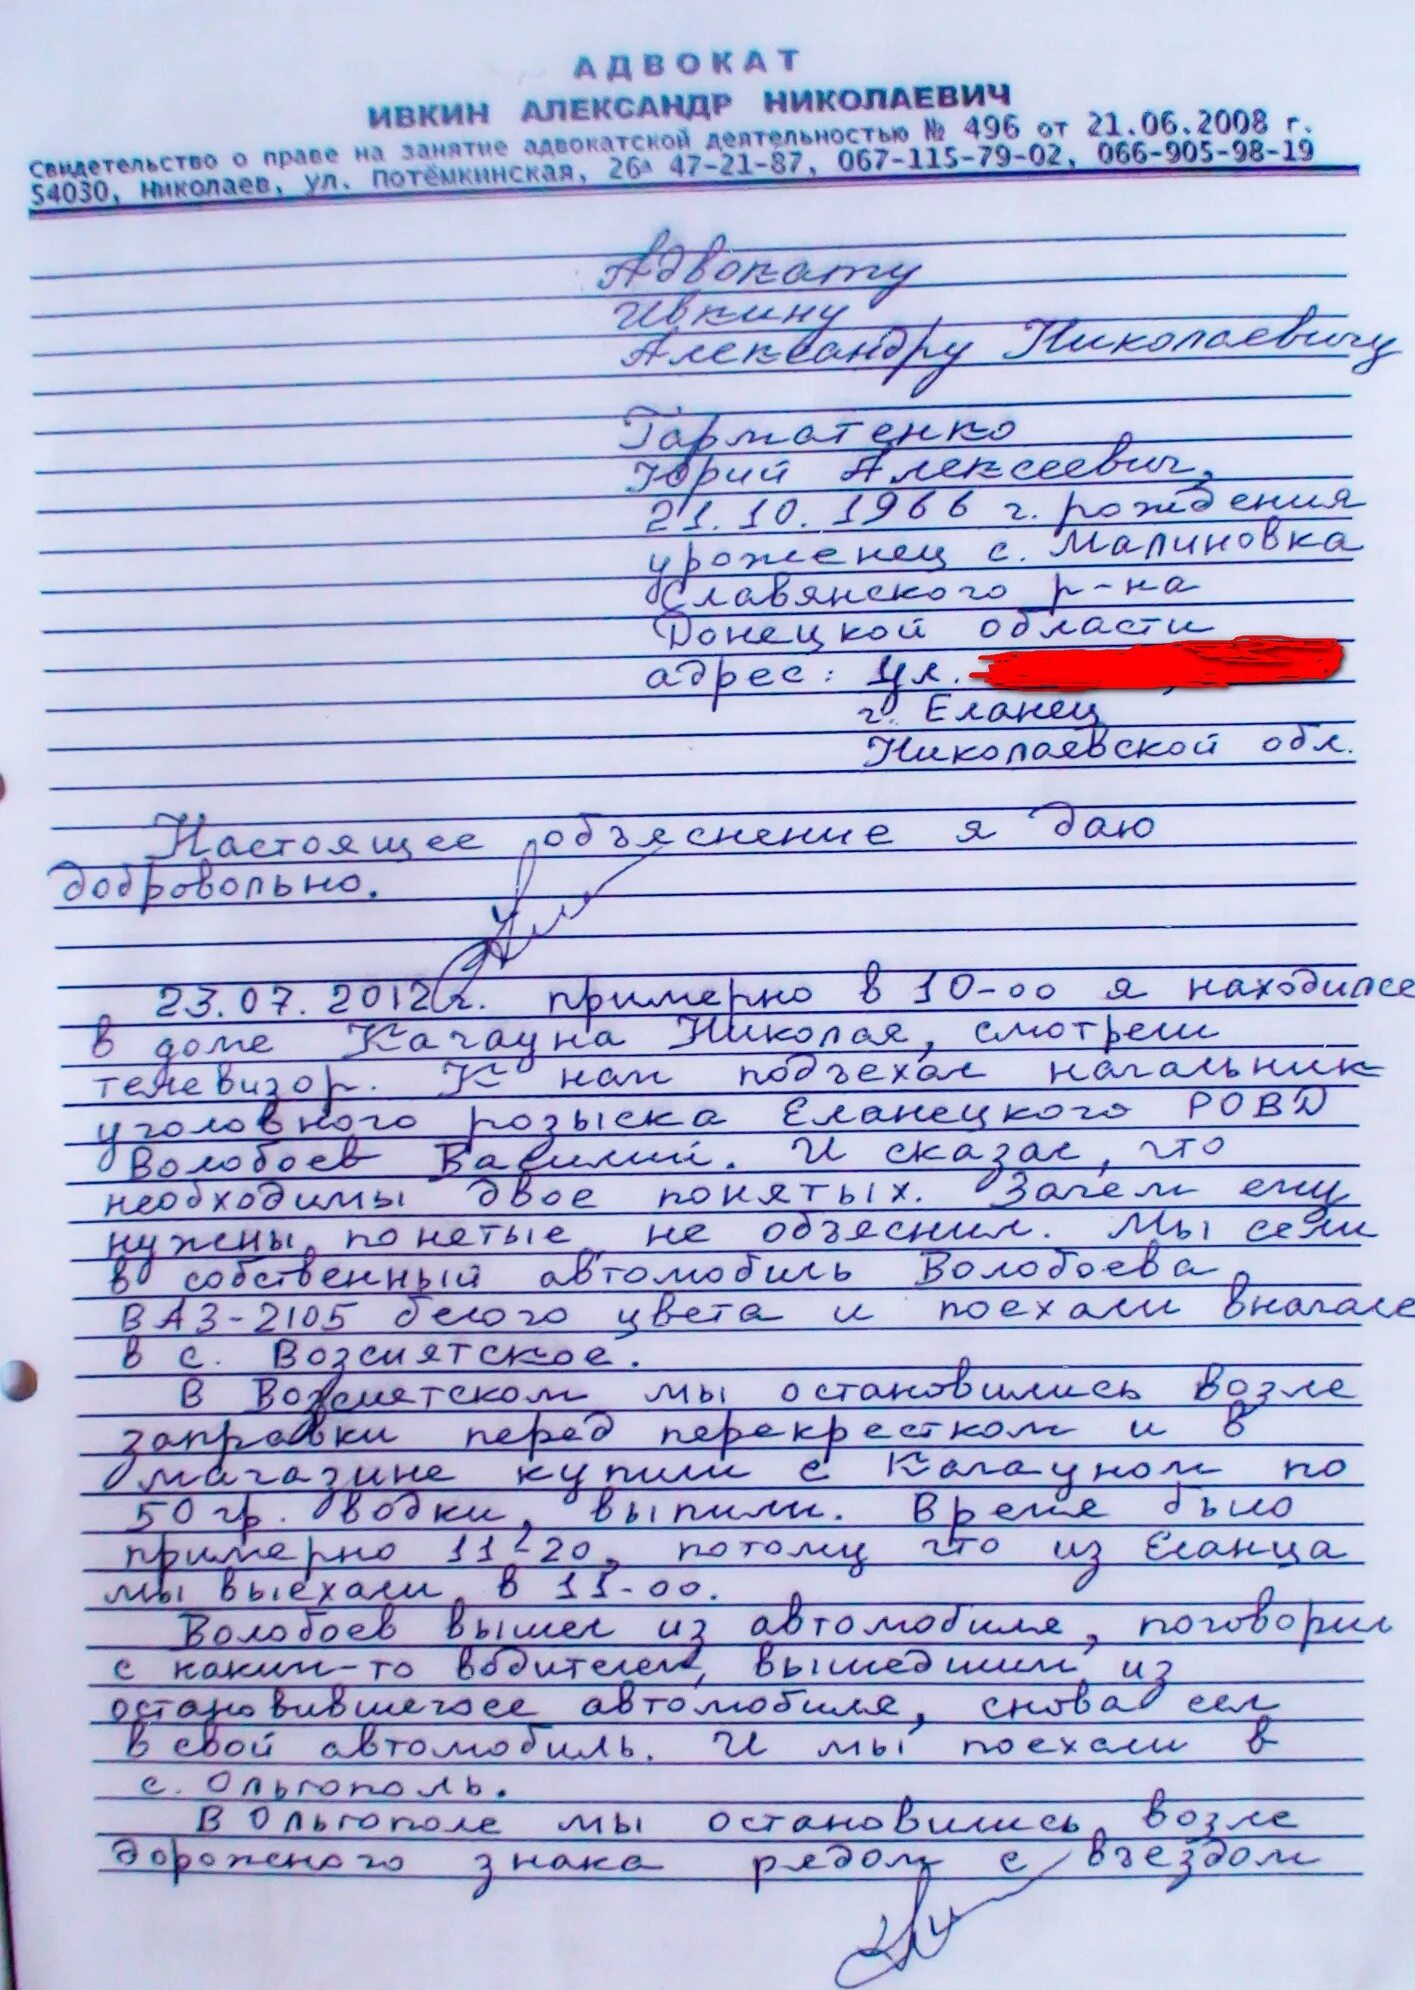 АДВОКАТ
ИВКИН АЛЕКСАНДР НИКОЛАЕВИЧ
Свидетельство о праве на занятие адвокатской деятельностью № 496 от 21.06.2008 г.
54030, Николаев, ул. Потёмкинская, 26а 47-21-87, 067-115-79-02, 066-905-98-19
Адвокату
Ивкину
Александру Николаевичу
Гарматенко
Юрий Алексеевич,
21.10.1966 г. рождения
уроженец с. Малиновка
Славянского р-на
Донецкой области
адрес: ул.
г. Еланец
Николаевской обл.
Настоящее объяснение я даю
добровольно.
23.07.2012г. примерно в 10-00 я находился
в доме Качауна Николая, смотрели
телевизор. К нам подъехал начальник
уголовного розыска Еланецкого РОВД
Волобоев Василий. И сказал, что
необходимы двое понятых. Зачем ему
нужены понетые не объеснил. Мы сели
в собственный автомобиль Волобоева
ВАЗ-2105 белого цвета и поехали вначале
в с. Возсиятское.
В Возсиятском мы остановились возле
заправки перед перекрестком и в
магазине купили с Качауном по
50 гр. водки, выпили. Время было
примерно 11-20, потому что из Еланца
мы выехали в 11-00.
Волобоев вышел из автомобиля, поговорил
с каким-то водителем, вышедшим из
остановившегося автомобиля, снова сел
в свой автомобиль. И мы поехали в
с. Ольгополь.
В Ольгополе мы остановились возле
дорожного знака рядом с въездом